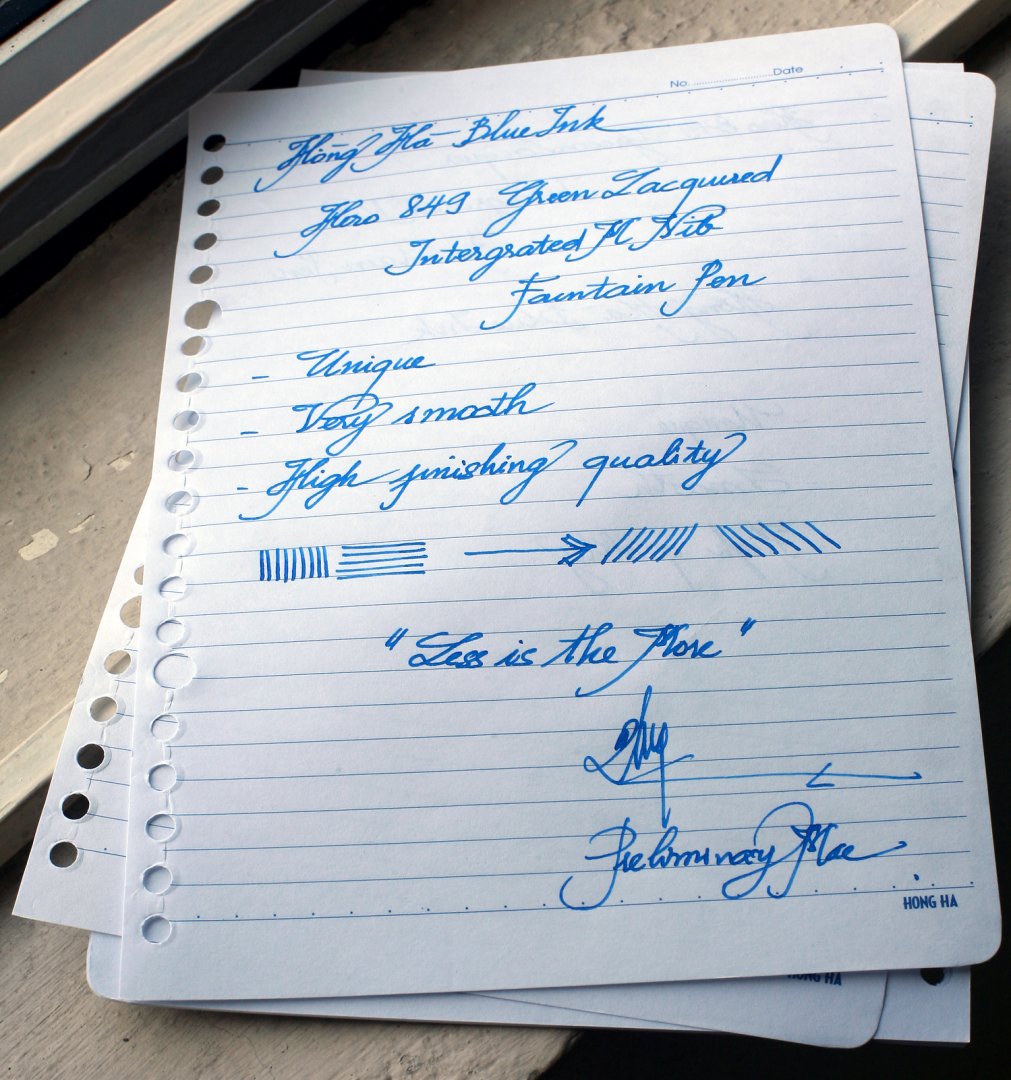 No. ........................Date
Hồng Hà Blue Ink
Hero 849 Green Lacquered
Intergrated M Nib
Fountain Pen
- Unique
- Very smooth
- High finishing quality
"Less is the More"
Preliminary Mae
HONG HA
HONG HA